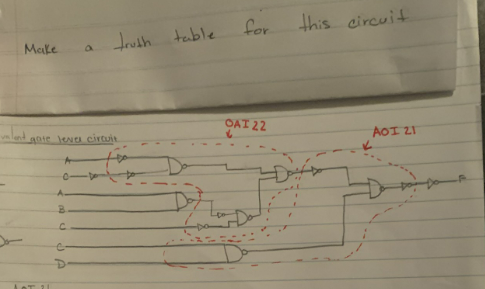 Make a truth table for this circuit
gate level circuit
OAI 22
AOI 21
A
C
A
B
C
C
D
F
AOI 21